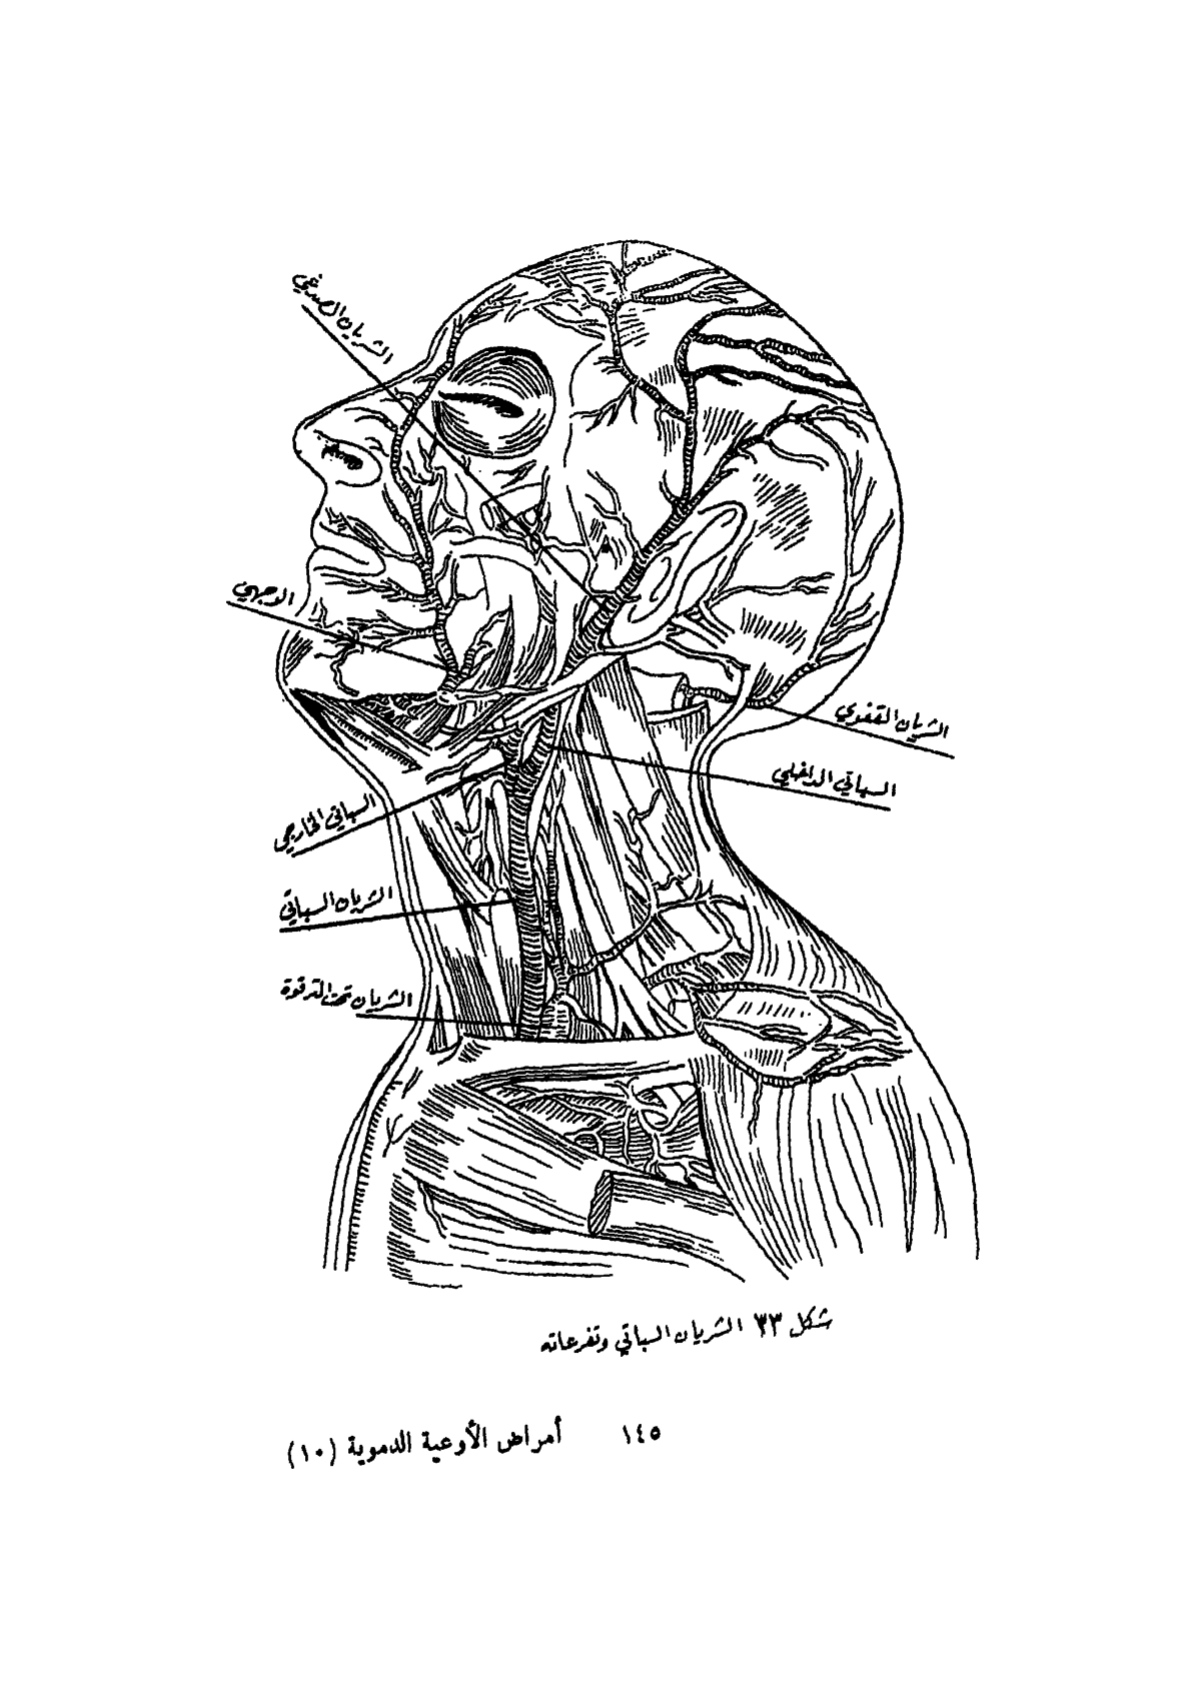 الشريان الصدغي
الوجهي
الشريان القفوي
السباتي الداخلي
السباتي الخارجي
الشريان السباتي
الشريان تحت الترقوة
شكل ٣٣ الشريان السباتي وتفرعاته
١٤٥ أمراض الأوعية الدموية (١٠)